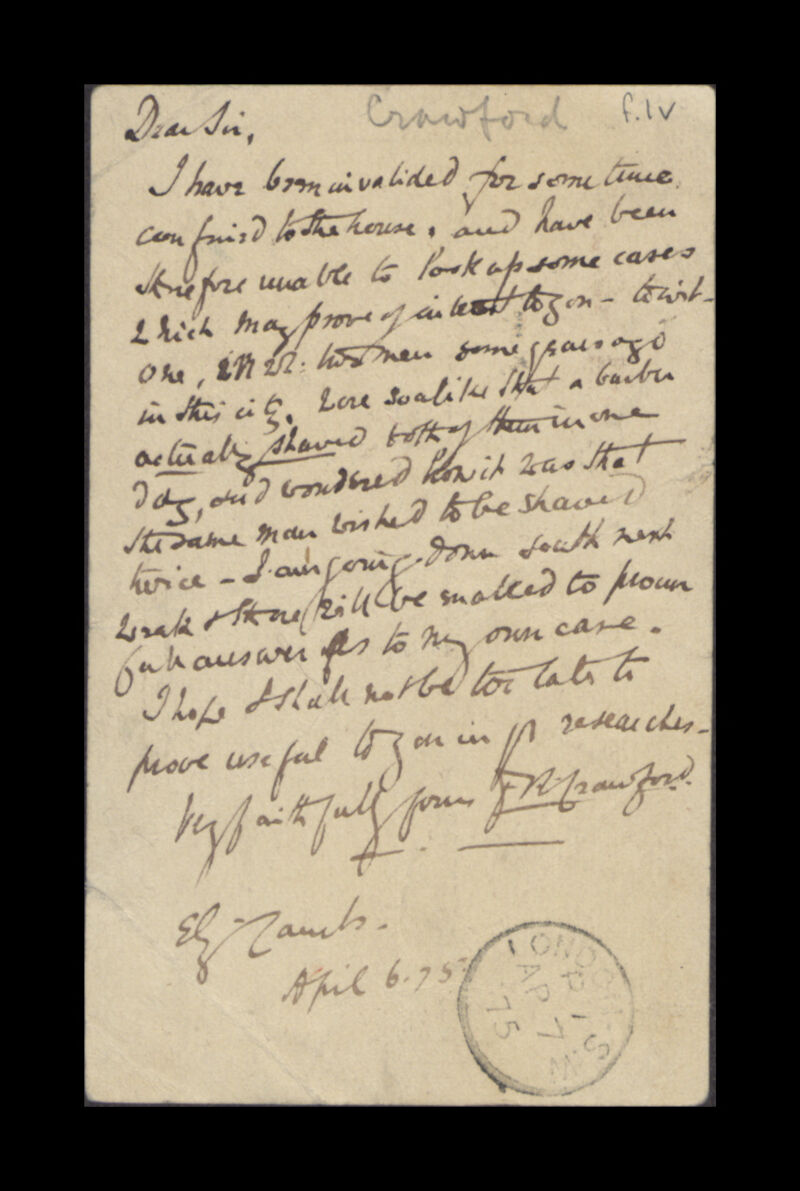 Crawford f.1v
Dear Sir,
I have been invalided for some time
confined to the house, and have been
therefore unable to look up some cases
which may prove of interest to you - to wit -
one, two men some years ago
in this city, were so alike that a barber
actually shaved both of them in one
day, and wondered how it was that
the same man wished to be shaved
twice - I am going down south next
week & there will be enabled to procure
full answers as to my own case.
I hope I shall not be too late to
prove useful to you in yr researches -
Very faithfully yours F R Crawford.
Ely Cambs.
April 6. 75
LONDON - S.W
P 1
AP 7
75